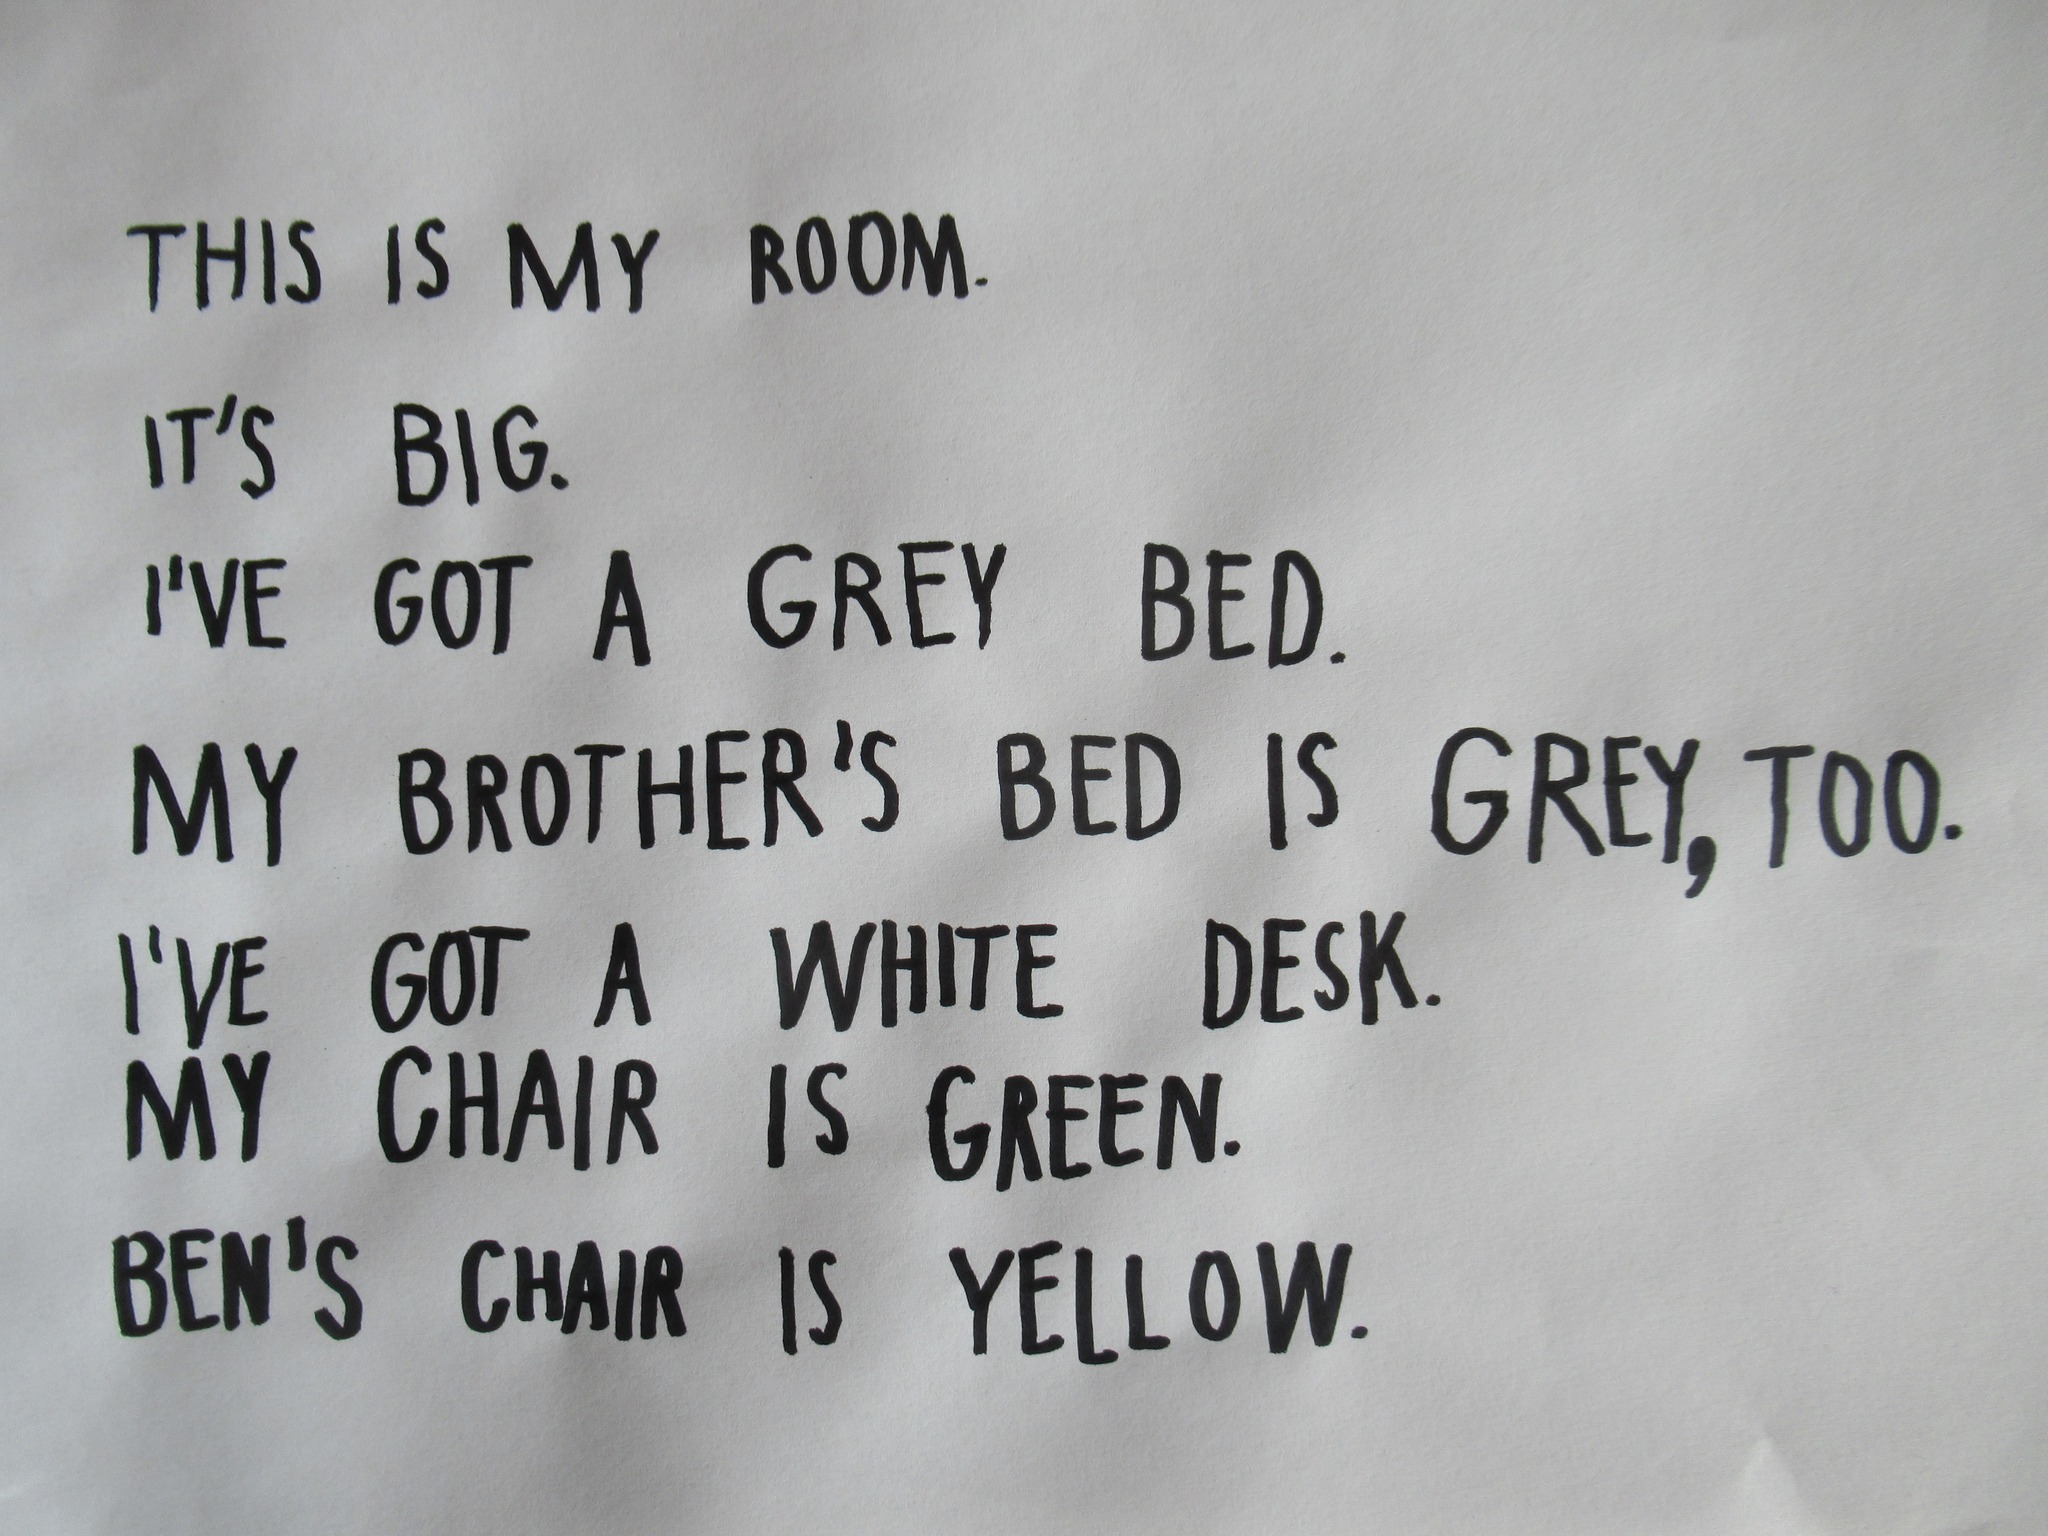 THIS IS MY ROOM.
IT'S BIG.
I'VE GOT A GREY BED.
MY BROTHER'S BED IS GREY, TOO.
I'VE GOT A WHITE DESK.
MY CHAIR IS GREEN.
BEN'S CHAIR IS YELLOW.